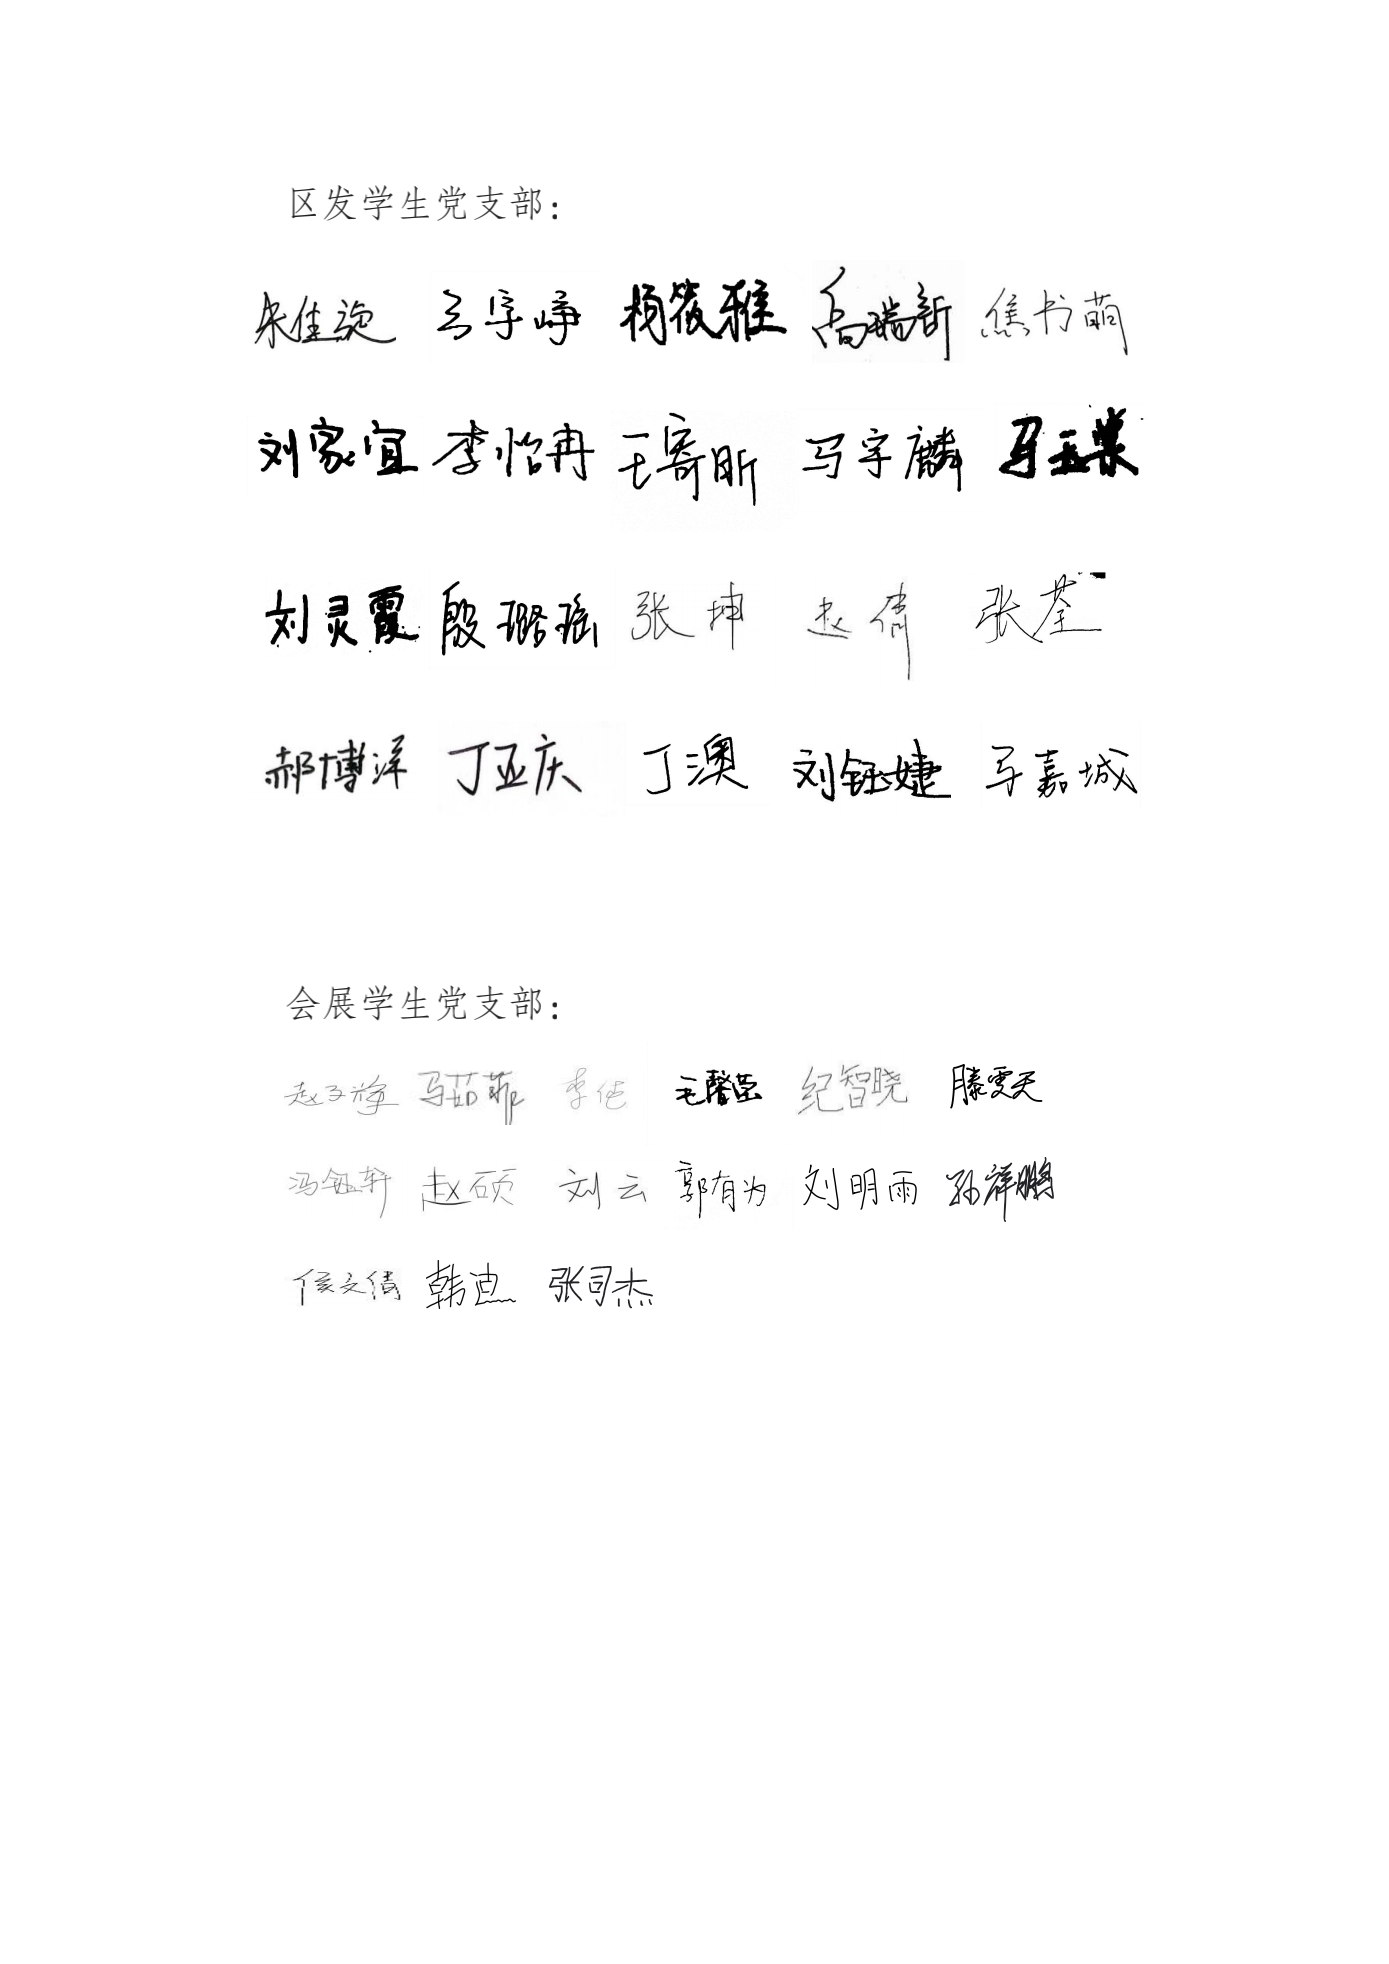 区发学生党支部：
宋佳旎 王宇峥 杨筱雅 高瑞新 焦书萌
刘家宜 李怡冉 王寄昕 马宇麟 马玉
刘灵霞 殷璐瑶 张坤 赵倩 张荃
郝博洋 丁亚庆 丁澳 刘钰婕 马嘉城
会展学生党支部：
赵子 马茹菲 李佳 毛馨 纪智晓 滕雯天
冯钰轩 赵硕 刘云 郭有为 刘明雨 孙祥鹏
侯文倩 韩迪 张司杰